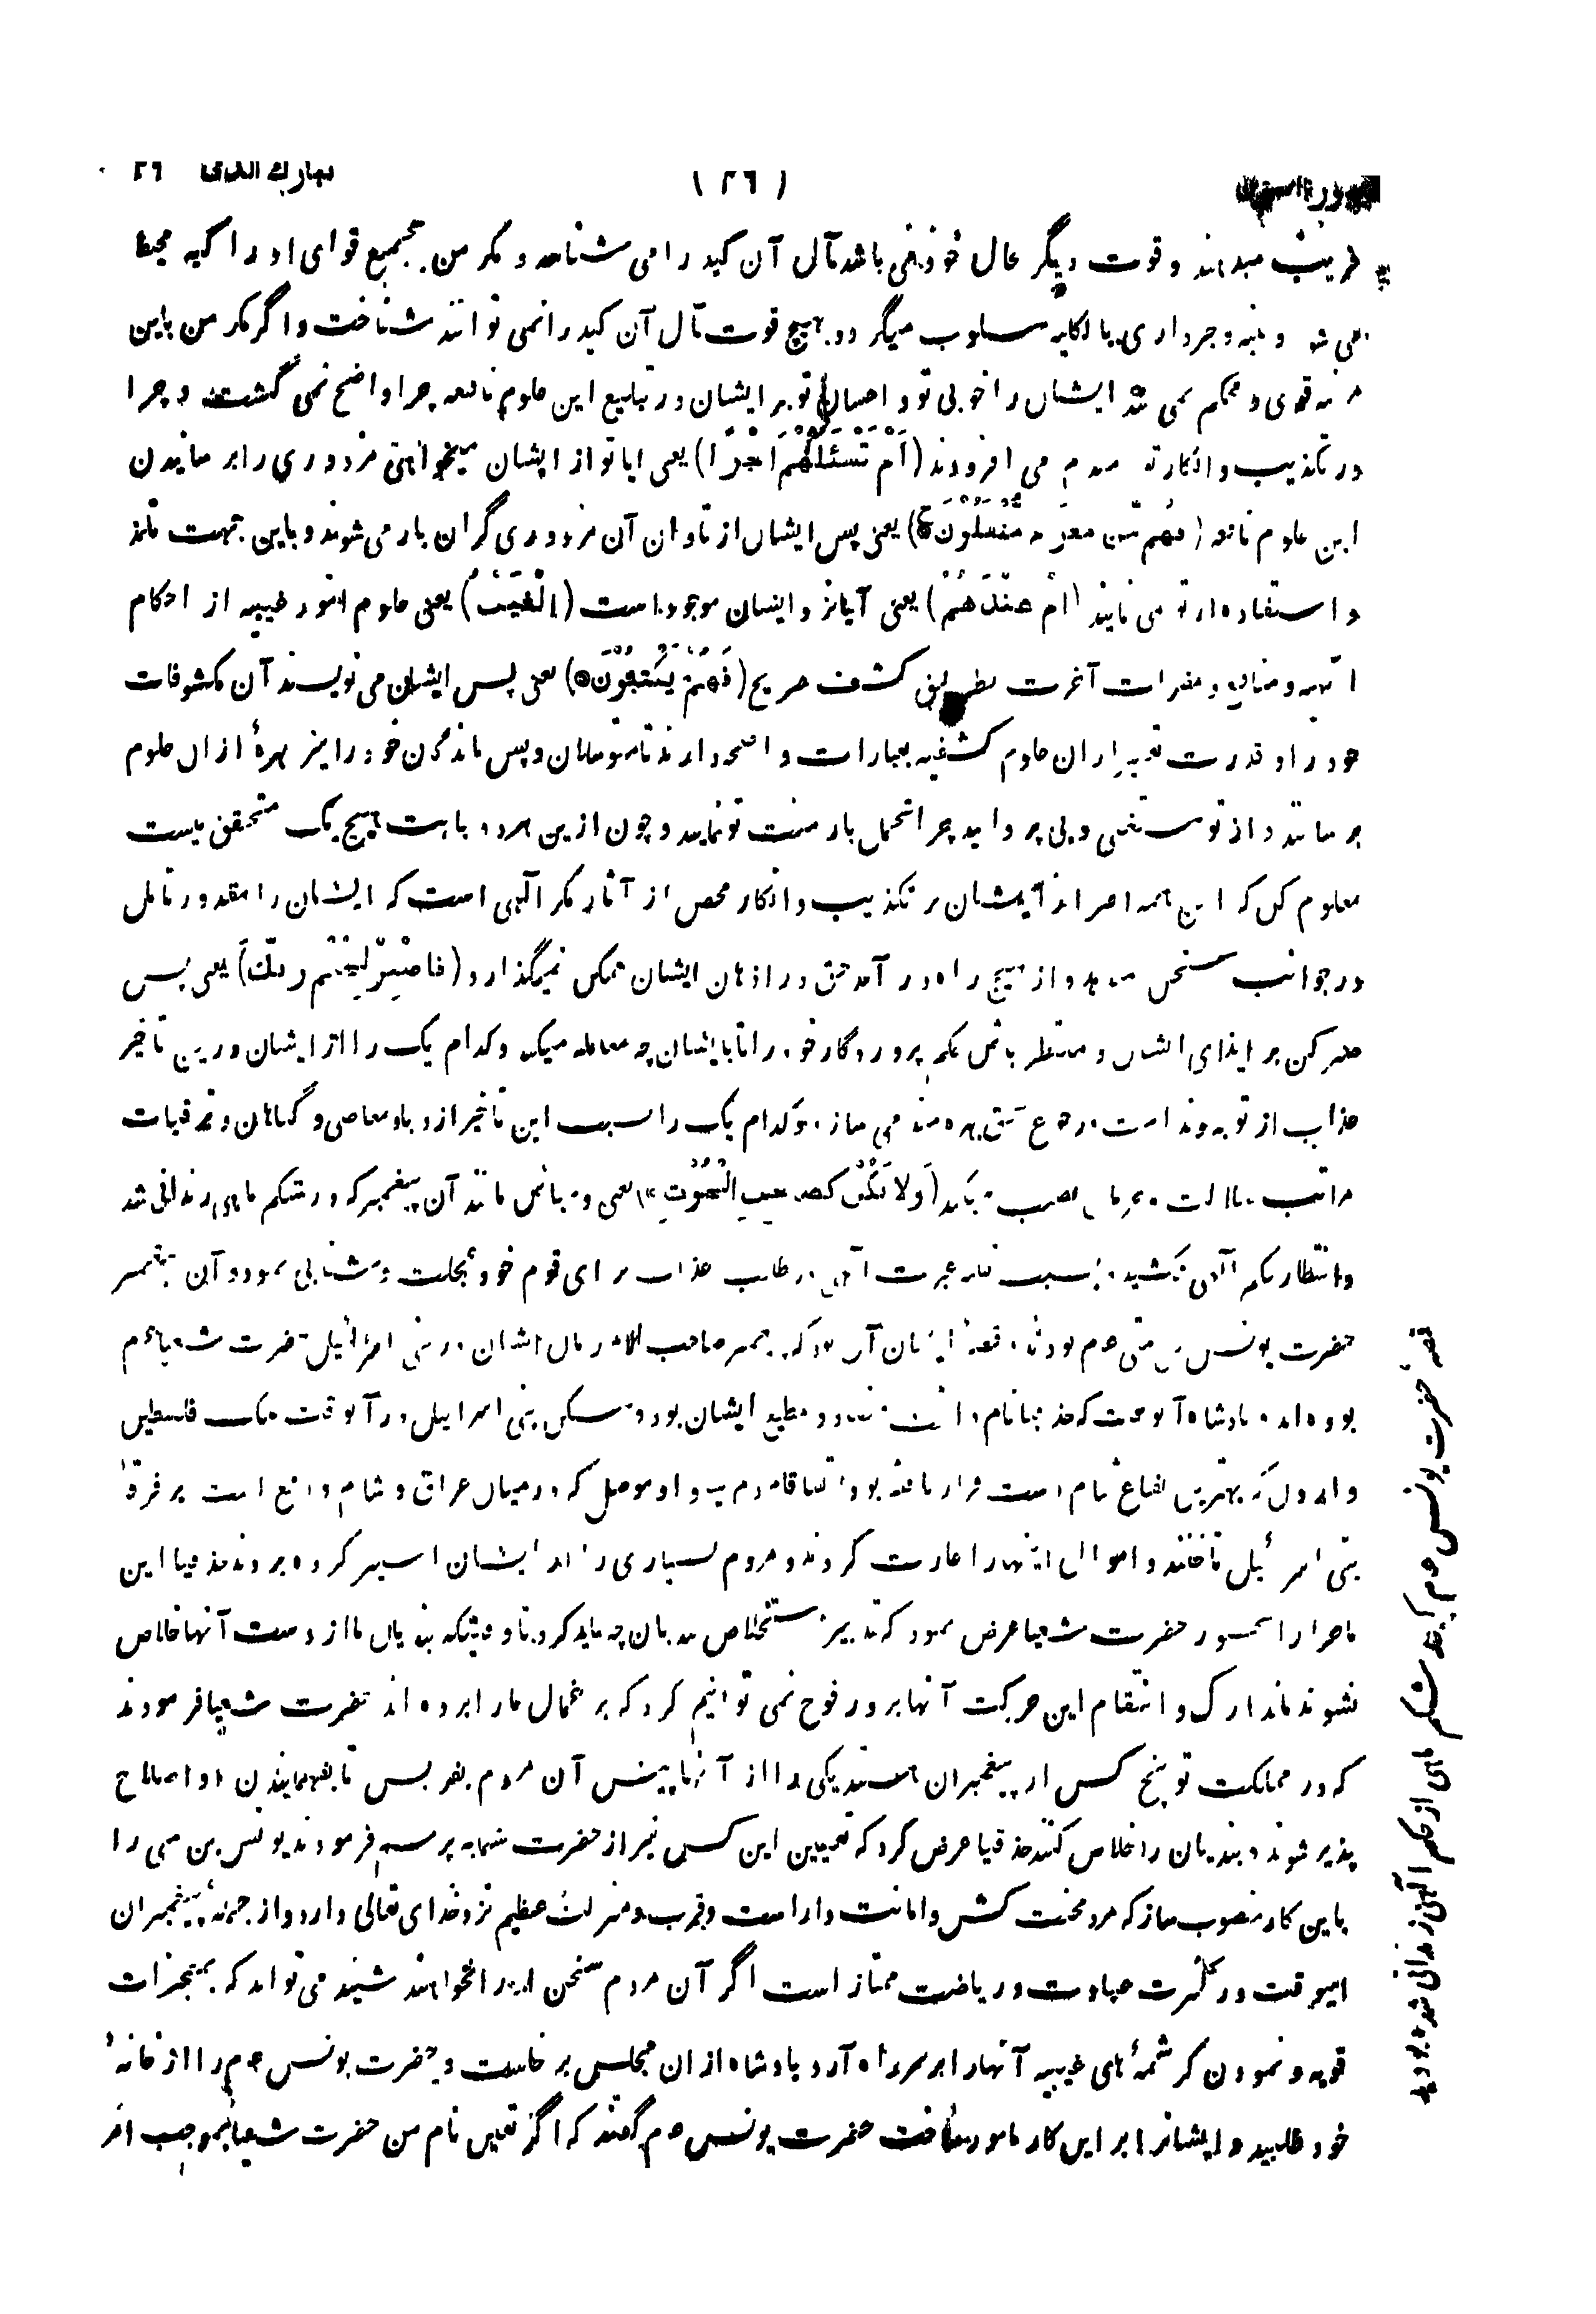 تبارک الذی ٢٩ (٢٦)
فریب میدهند و قوت دیگر حال خوف نفی باشد مآل آن کید را می شناسد و مکر من بجمیع قوای او را کیه محیط
می شود و تنبه و خبرداری بالکلیه مسلوب میگردد و بهیچ قوت مآل آن کید را نمی توانند شناخت و اگر مکر من باین
مرتبه قوی و محکم نمی شد ایشان را خوبی تو و احسان تو بر ایشان در تبلیغ این علوم نافعه چرا واضح نمی گشت و چرا
در تکذیب و انکار تو قدم می افزودند (اَمْ تَسْئَلُهُمْ اَجْرًا) یعنی آیا تو از ایشان میخواهی مزدوری را بر رسانیدن
این علوم نافعه (فَهُمْ مِّنْ مَّغْرَمٍ مُّثْقَلُوْنَ) یعنی پس ایشان از تاوان آن مزدوری گران بار می شوند و باین جهت تلمذ
و استفاده از تو نمی نمایند (اَمْ عِنْدَهُمُ) یعنی آیا نزد ایشان موجود است (الْغَيْبُ) یعنی علوم امور غیبیه از احکام
الهیه و منافع و مضرات آخرت بطریق کشف صریح (فَهُمْ يَكْتُبُوْنَ) یعنی پس ایشان می نویسند آن مکشوفات
خود را و قدرت تعبیر از ان علوم کشفیه بعبارات واضحه دارند تا متوسلان و پس ماندگان خود را نیز بهرهٔ از ان علوم
برسانند و از تو مستغنی و بی پروا اند چرا تحمل بار منت تو نمایند و چون ازین هر دو بابت هیچ یک متحقق نیست
معلوم کن که این همه اصرار ایشان بر تکذیب و انکار محض از آثار مکر الهی است که ایشان را مقدور تامل
در جوانب سخن نمیدهد و از هیچ راه در آمد حق در اذهان ایشان ممکن نمیگذارد (فَاصْبِرْ لِحُكْمِ رَبِّكَ) یعنی پس
صبر کن بر ایذای ایشان و منتظر باش حکم پروردگار خود را تا با ایشان چه معامله میکند و کدام یک را از ایشان درین تاخیر
عذاب از توبه و ندامت و رجوع بحق بهره مند می سازد و کدام یک را بسبب این تاخیر ازدیاد معاصی و گناهان و ترقیات
مراتب ضلالت و حرمان نصیب میکند (وَلَا تَكُنْ كَصَاحِبِ الْحُوْتِ) یعنی و مباش مانند آن پیغمبر که در شکم ماهی زندانی شد
و انتظار حکم الهی نکشید و بسبب غلبه غیرت الهی در طلب عذاب برای قوم خود عجلت و شتابی نمود و آن پیغمبر
حضرت یونس بن متی عم بودند و قصهٔ ایشان آن بود که پیغمبر صاحب الامر زمان ایشان در بنی اسرائیل حضرت شعیا عم
بوده اند و پادشاه آنوقت که حذقیا نام داشت منقاد و مطیع ایشان بود و مسکن بنی اسرائیل در آنوقت ملک فلسطین
و اردن که بهترین بقاع شام است قرار یافته بود اتفاقا مردم نینوا و موصل که درمیان عراق و شام واقع است بر فرقهٔ
بنی اسرائیل تاختند و اموال اینها را غارت کردند و مردم بسیاری را از ایشان اسیر کرده بردند حذقیا این
ماجرا را بحضور حضرت شعیا عرض نمود که تدبیر استخلاص بندیان چه باید کرد تا وقتیکه بندیان ما از دست آنها خلاص
نشوند ما تدارک و انتقام این حرکت آنها بر زور فوج نمی توانیم کرد که یرغمال ما را برده اند حضرت شعیا فرمودند
که در مملکت تو پنج کس از پیغمبران هستند یکی را از آنها پیش آن مردم بفرست تا بفهمانیدن او اصلاح
پذیر شوند و بندیان را خلاص کنند حذقیا عرض کرد که تعیین این کس نیز از حضرت شما به پرسم فرمودند یونس بن متی را
باین کار منصوب ساز که مرد محنت کش و امانت دار است و قرب و منزلت عظیم نزد خدای تعالی دارد و از جملهٔ پیغمبران
اینوقت در کثرت عبادت و ریاضت ممتاز است اگر آن مردم سخن او را نخواهند شنید می تواند که بمعجزات
قویه و نمودن کرشمهٔ های غیبیه آنها را بر سر راه آرد پادشاه از ان مجلس برخاست و حضرت یونس عم را از خانهٔ
خود طلبید و ایشانرا بر این کار مامور ساخت حضرت یونس عم گفتند که اگر تعیین نام من حضرت شعیا بموجب امر
قصهٔ حضرت یونس عم که چند شکم ماهی از حکم الهی زندانی شده بودند